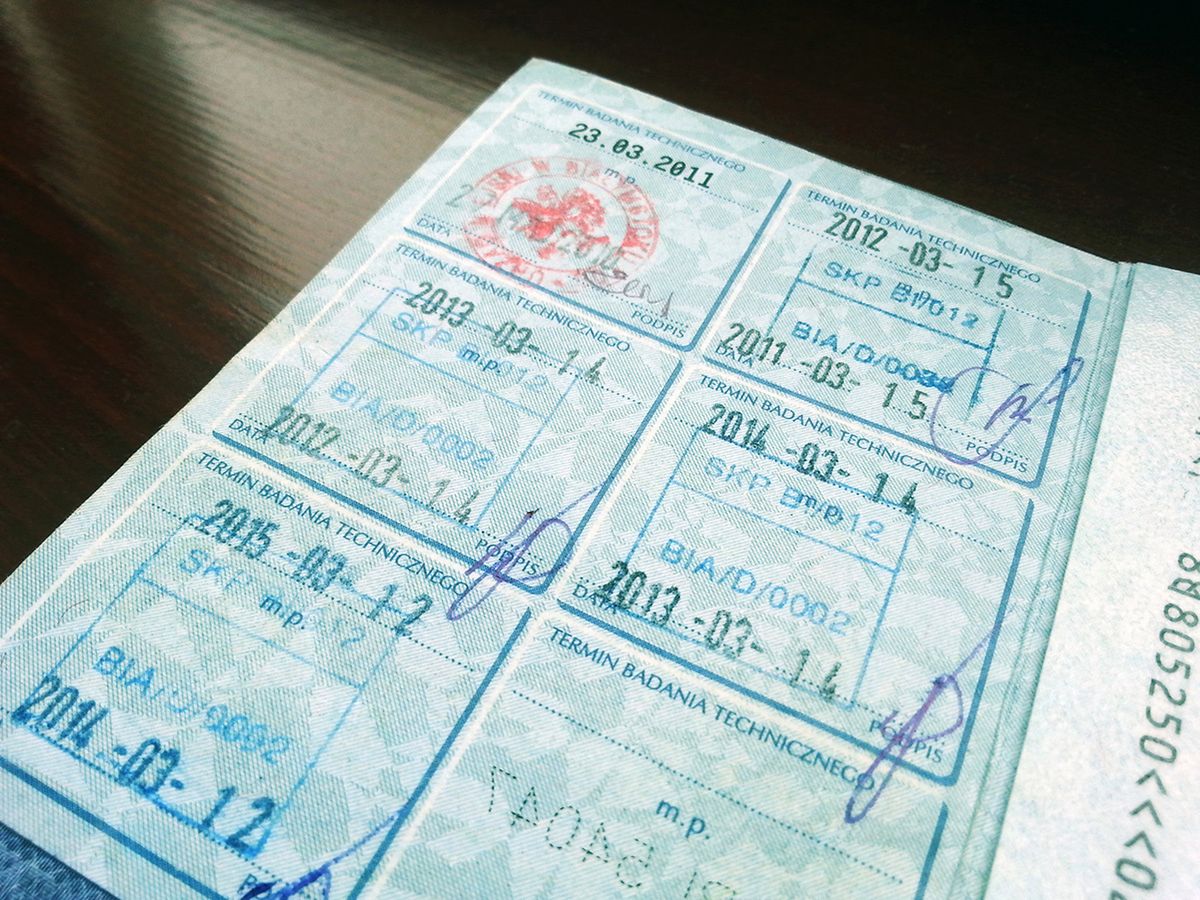 TERMIN BADANIA TECHNICZNEGO
23.03.2011
m.p.
DATA
PODPIS
TERMIN BADANIA TECHNICZNEGO
2012 -03- 15
SKP
BIA/D/0038
2011 -03- 15
DATA
PODPIS
TERMIN BADANIA TECHNICZNEGO
2013 -03- 14
SKP m.p. 12
BIA/D/0002
2012 -03- 14
DATA
PODPIS
TERMIN BADANIA TECHNICZNEGO
2014 -03- 14
SKP m.p. 12
BIA/D/0002
2013 -03- 14
DATA
PODPIS
TERMIN BADANIA TECHNICZNEGO
2015 -03- 12
SKP
m.p.
BIA/D/0002
2014 -03- 12
TERMIN BADANIA TECHNICZNEGO
m.p.
8980525O<<<